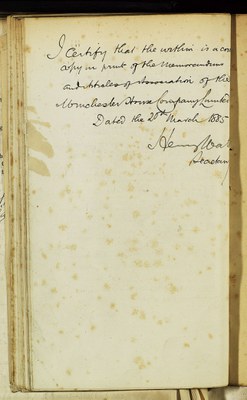 I Certify that the within is a
copy in print of the Memorandum
and Articles of Association of the
Winchester House Company Limited
Dated the 20th March 1885
Henry